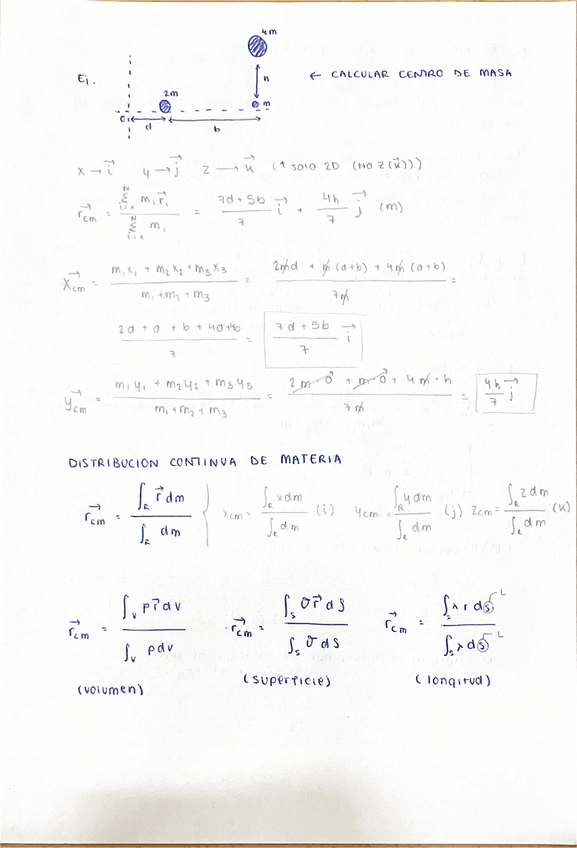 4m
Ej. h ← CALCULAR CENTRO DE MASA
2m m
O
d b
x → i⃗ y → j⃗ z → k⃗ (↑ SOLO 2D (NO Z(k⃗)))
r⃗cm = Σ(i=1) mi r⃗i / Σ(i=1) mi = (7d+5b)/7 i⃗ + 4h/7 j⃗ (m)
x⃗cm = (m1x1 + m2x2 + m3x3)/(m1+m2+m3) = (2md + m(a+b) + 4m(a+b))/7m =
(2d + d + b + 4d+4b)/7 = (7d+5b)/7 i⃗
y⃗cm = (m1y1 + m2y2 + m3y3)/(m1+m2+m3) = (2m·0 + m·0 + 4m·h)/7m = 4h/7 j⃗
DISTRIBUCION CONTINUA DE MATERIA
r⃗cm = ∫R r⃗ dm / ∫R dm { xcm = ∫R xdm / ∫R dm (i) ycm = ∫R ydm / ∫R dm (j) zcm = ∫R zdm / ∫R dm (k)
r⃗cm = ∫V ρr⃗dv / ∫V ρdv r⃗cm = ∫S σr⃗dS / ∫S σdS r⃗cm = ∫S λrdS L / ∫S λdS L
(volumen) (superficie) (longitud)